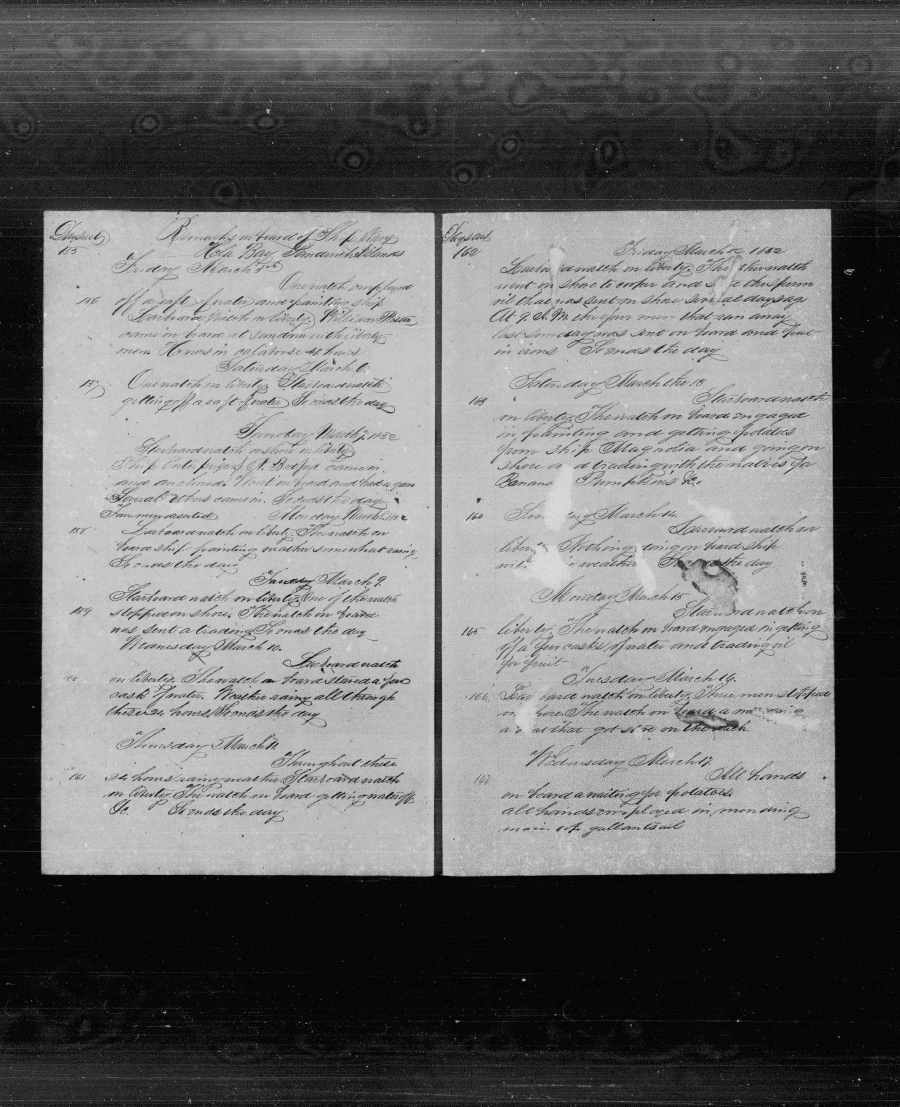 Days out
Remarks on board of Ship
155
Hilo Bay Sandwich Islands
Friday March 5th
One watch employed
156
off a raft of water and painting ship
Larboard watch on liberty. William
came on board at sundown in the liberty
men He was in calaboose 48 hours
Saturday March 6
157
One watch on liberty Starboard watch
getting off a raft of water So ends the day
Sunday March 7 1852
Starboard watch on shore on liberty
Ship Enterprize of N. Bedford came in
and anchored. Went on board and had a gam
Several others came in. So ends the day
Monday March 8
158
Larboard watch on liberty. The watch on
board ship painting weather somewhat rainy
So ends the day
Tuesday March 9.
Starboard watch on liberty. One of the watch
159
stopped on shore. The watch on board
was sent a trading So ends the day
Wednesday March 10.
Larboard watch
160
on liberty. The watch on board stowed a few
cask of water. Weather rainy all through
these 24 hours, So ends the day
Thursday March 11
Throughout these
161
24 hours rainy weather Starboard watch
on liberty The watch on board getting water &c
&c. So ends the day
Days out
162
Friday March 12 1852
Larboard watch on liberty. The other watch
went on shore to cooper and the sperm
oil that was sent on shore several days ago
At 9 A.M. the four men that ran away
last Sunday was sent on board and put
in irons So ends the day
Saturday March the 13
163
Starboard watch
on liberty. The watch on board engaged
in painting and getting potatoes
from ship Magnolia and going on
shore and trading with the natives for
Banana Pumpkins &c.
164
Sunday March 14
Larboard watch on
liberty Nothing doing on board ship
weather So ends the day
Monday March 15
Starboard watch on
165
liberty. The watch on board engaged in getting
off a few casks of water and trading oil
for fruit
Tuesday March 16.
166
Larboard watch on liberty. Three men stopped
on shore. The watch on board a
a boat that got stove on the deck
Wednesday March 17
167
All hands
on board waiting for potatoes
all hands employed in mending
main top gallantsail